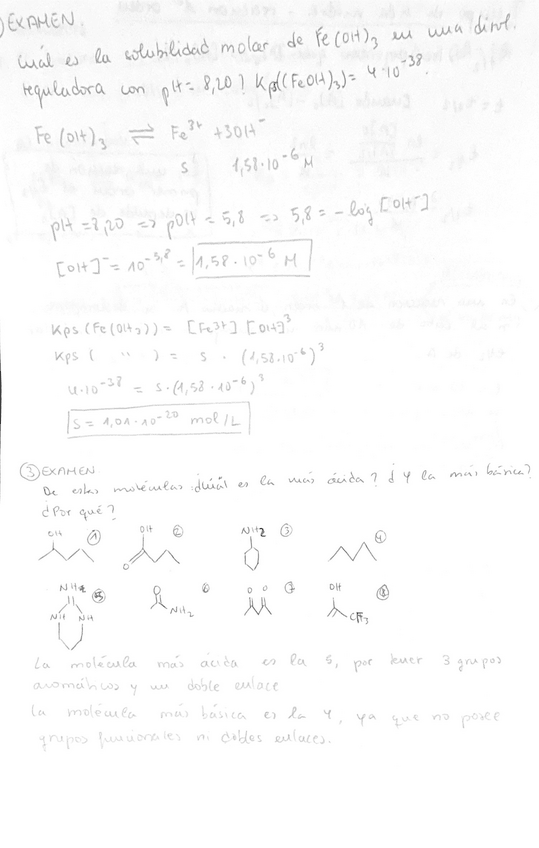 ) EXAMEN.
Cuál es la solubilidad molar de Fe(OH)3 en una disol.
reguladora con pH = 8,20? Kps(Fe(OH)3) = 4·10^-38.
Fe(OH)3 ⇌ Fe3+ + 3OH-
s 1,58·10^-6 M
pH = 8,20 => pOH = 5,8 => 5,8 = -log [OH-]
[OH]- = 10^-5,8 = 1,58·10^-6 M
Kps (Fe(OH3)) = [Fe3+] [OH]^3
Kps ( " ) = s · (1,58·10^-6)^3
4·10^-38 = s·(1,58·10^-6)^3
s = 1,01·10^-20 mol/L
③ EXAMEN
De estas moléculas ¿cuál es la más ácida? ¿Y la más básica?
¿Por qué?
OH ① OH ② NH2 ③ ④
O
NH ⑤ O ⑥ O O ⑦ OH ⑧
NH NH NH2 CF3
La molécula más ácida es la 5, por tener 3 grupos
aromáticos y un doble enlace
La molécula más básica es la 4, ya que no posee
grupos funcionales ni dobles enlaces.